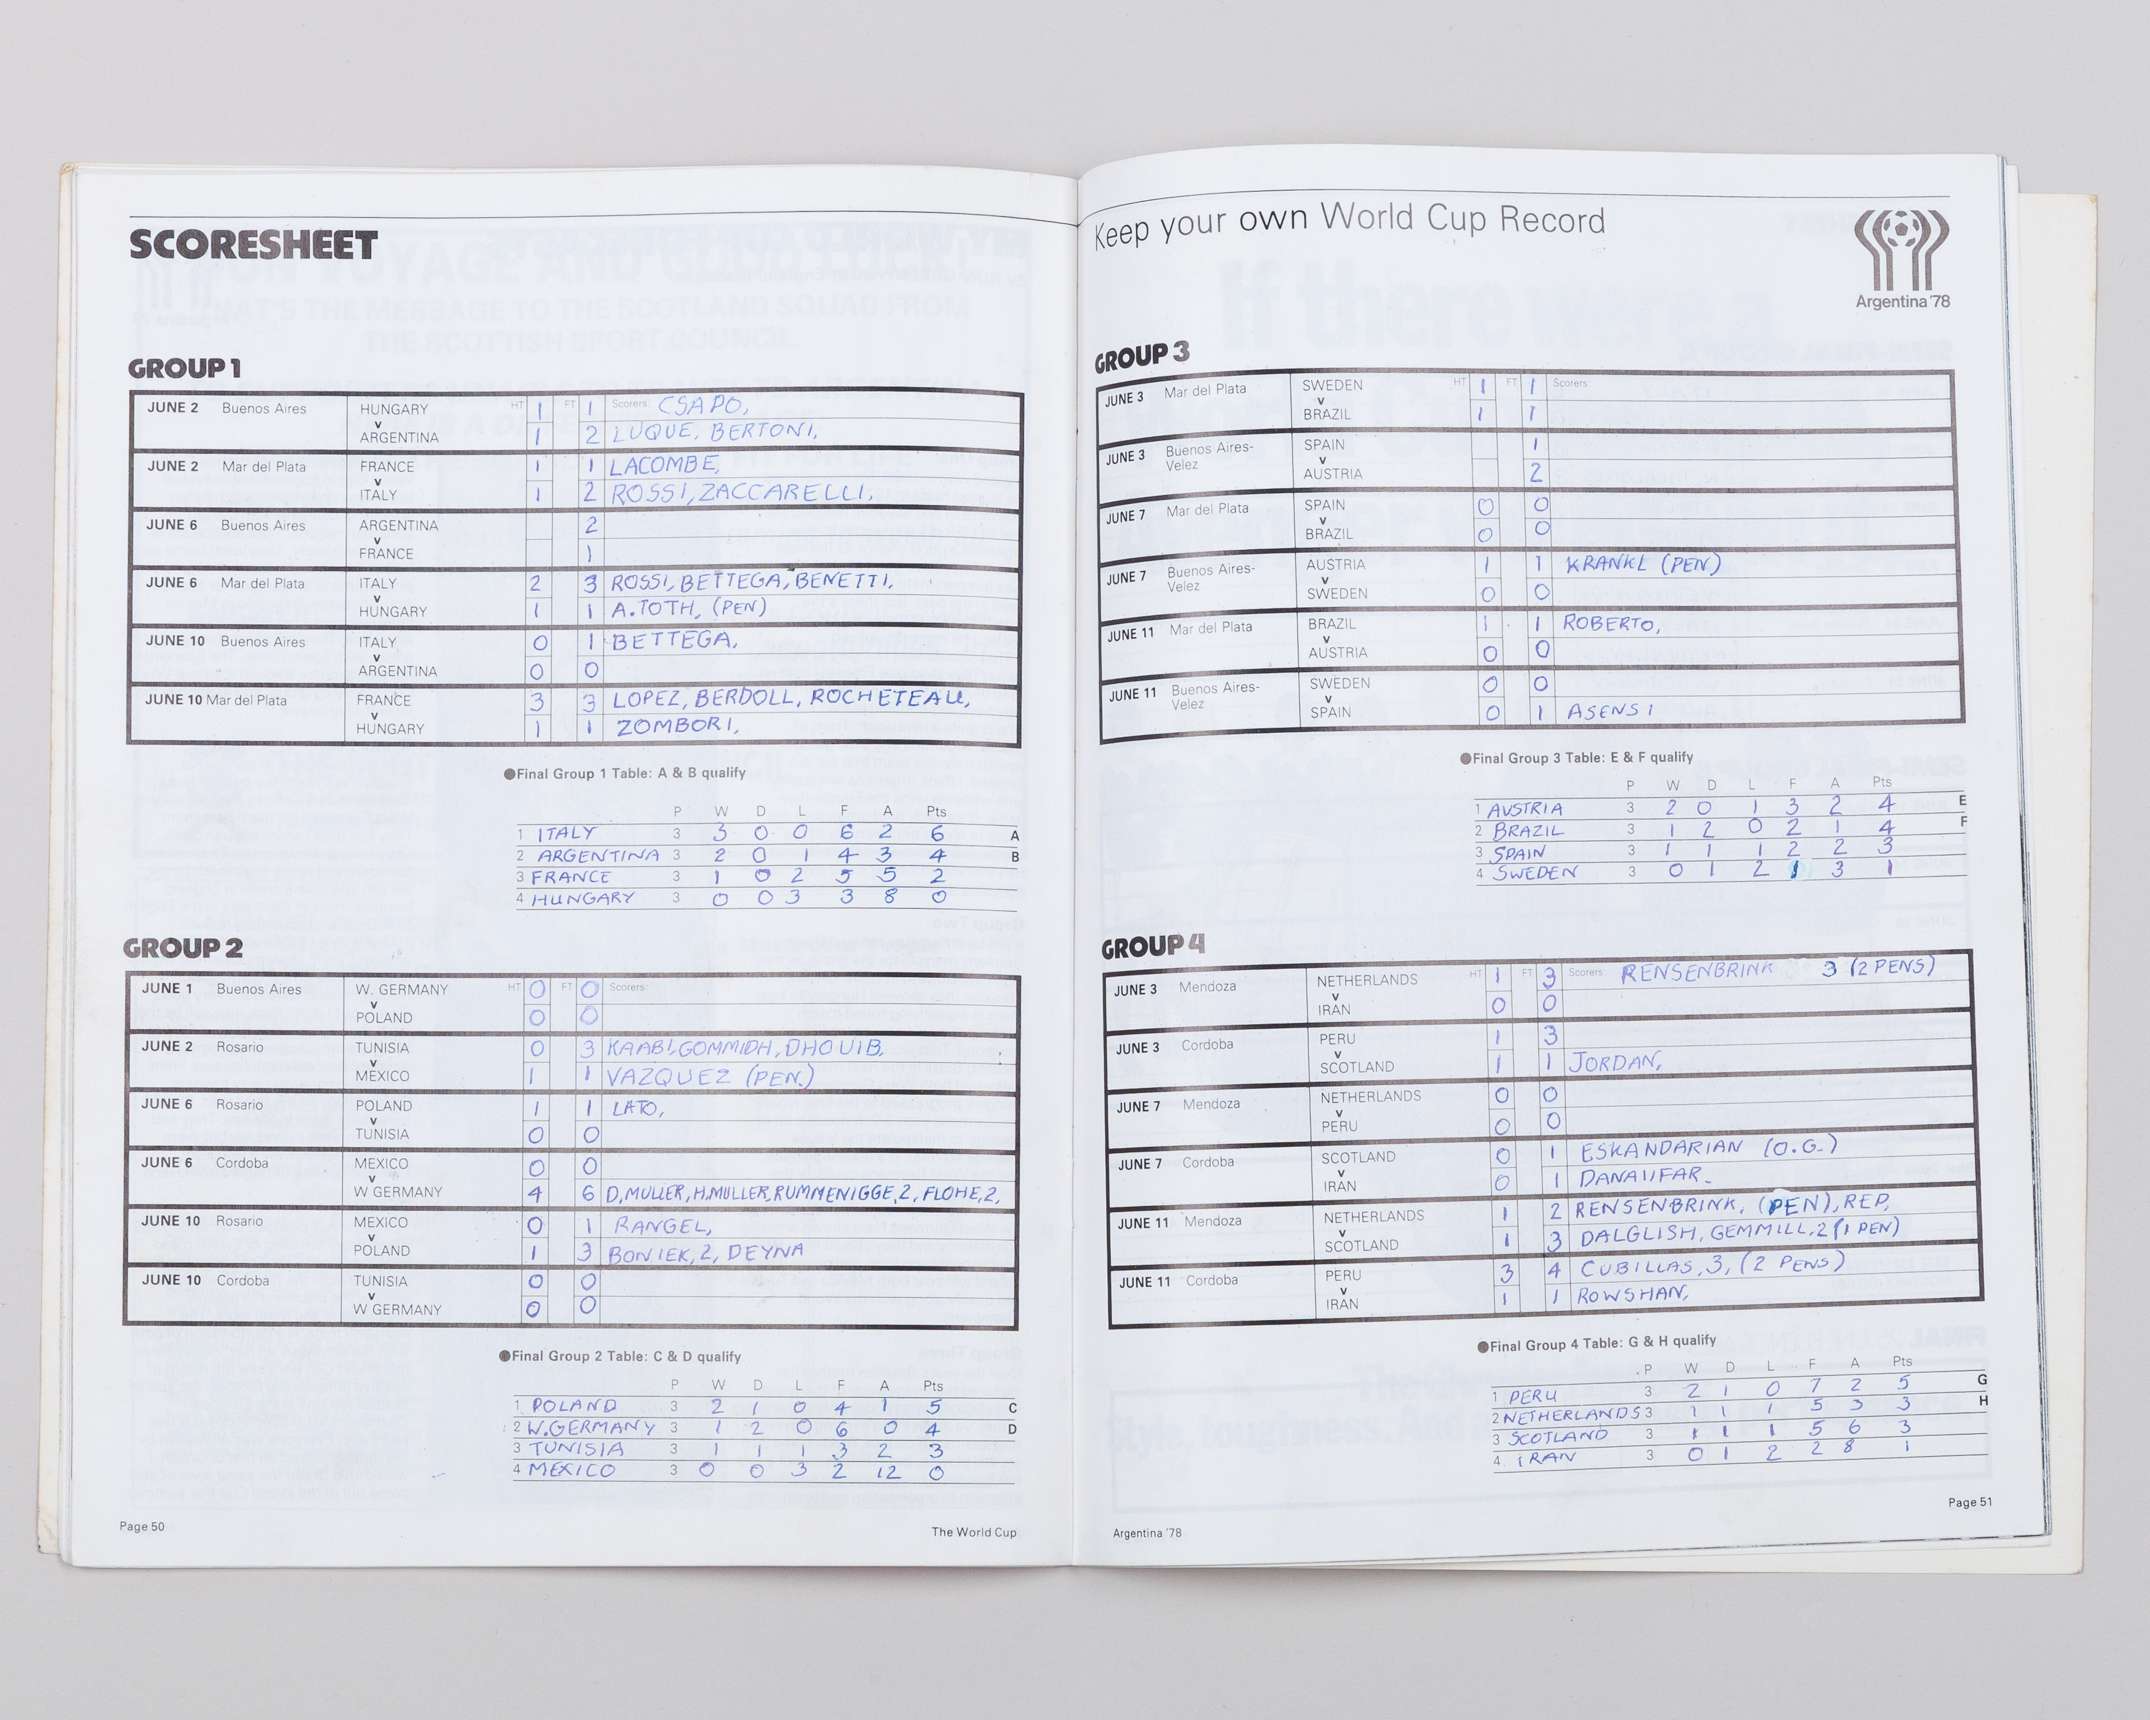 SCORESHEET
GROUP 1
JUNE 2 Buenos Aires HUNGARY HT 1 FT 1 Scorers: CSAPO,
v
ARGENTINA 1 2 LUQUE, BERTONI,
JUNE 2 Mar del Plata FRANCE 1 1 LACOMBE,
v
ITALY 1 2 ROSSI, ZACCARELLI,
JUNE 6 Buenos Aires ARGENTINA 2
v
FRANCE 1
JUNE 6 Mar del Plata ITALY 2 3 ROSSI, BETTEGA, BENETTI,
v
HUNGARY 1 1 A. TOTH, (PEN)
JUNE 10 Buenos Aires ITALY 0 1 BETTEGA,
v
ARGENTINA 0 0
JUNE 10 Mar del Plata FRANCE 3 3 LOPEZ, BERDOLL, ROCHETEAU,
v
HUNGARY 1 1 ZOMBORI,
●Final Group 1 Table: A & B qualify
P W D L F A Pts
1 ITALY 3 3 0 0 6 2 6 A
2 ARGENTINA 3 2 0 1 4 3 4 B
3 FRANCE 3 1 0 2 5 5 2
4 HUNGARY 3 0 0 3 3 8 0
GROUP 2
JUNE 1 Buenos Aires W. GERMANY HT 0 FT 0 Scorers:
v
POLAND 0 0
JUNE 2 Rosario TUNISIA 0 3 KAABI, GOMMIDH, DHOUIB,
v
MEXICO 1 1 VAZQUEZ (PEN.)
JUNE 6 Rosario POLAND 1 1 LATO,
v
TUNISIA 0 0
JUNE 6 Cordoba MEXICO 0 0
v
W GERMANY 4 6 D. MULLER, H. MULLER, RUMMENIGGE, 2, FLOHE, 2,
JUNE 10 Rosario MEXICO 0 1 RANGEL,
v
POLAND 1 3 BONIEK, 2, DEYNA
JUNE 10 Cordoba TUNISIA 0 0
v
W GERMANY 0 0
●Final Group 2 Table: C & D qualify
P W D L F A Pts
1 POLAND 3 2 1 0 4 1 5 C
2 W. GERMANY 3 1 2 0 6 0 4 D
3 TUNISIA 3 1 1 1 3 2 3
4 MEXICO 3 0 0 3 2 12 0
Page 50
The World Cup
Keep your own World Cup Record
Argentina '78
GROUP 3
JUNE 3 Mar del Plata SWEDEN HT 1 FT 1 Scorers:
v
BRAZIL 1 1
JUNE 3 Buenos Aires-Velez SPAIN 1
v
AUSTRIA 2
JUNE 7 Mar del Plata SPAIN 0 0
v
BRAZIL 0 0
JUNE 7 Buenos Aires-Velez AUSTRIA 1 1 KRANKL (PEN)
v
SWEDEN 0 0
JUNE 11 Mar del Plata BRAZIL 1 1 ROBERTO,
v
AUSTRIA 0 0
JUNE 11 Buenos Aires-Velez SWEDEN 0 0
v
SPAIN 0 1 ASENSI
●Final Group 3 Table: E & F qualify
P W D L F A Pts
1 AUSTRIA 3 2 0 1 3 2 4 E
2 BRAZIL 3 1 2 0 2 1 4 F
3 SPAIN 3 1 1 1 2 2 3
4 SWEDEN 3 0 1 2 1 3 1
GROUP 4
JUNE 3 Mendoza NETHERLANDS HT 1 FT 3 Scorers: RENSENBRINK 3 (2 PENS)
v
IRAN 0 0
JUNE 3 Cordoba PERU 1 3
v
SCOTLAND 1 1 JORDAN,
JUNE 7 Mendoza NETHERLANDS 0 0
v
PERU 0 0
JUNE 7 Cordoba SCOTLAND 0 1 ESKANDARIAN (O.G.)
v
IRAN 0 1 DANAIIFAR
JUNE 11 Mendoza NETHERLANDS 1 2 RENSENBRINK, (PEN), REP,
v
SCOTLAND 1 3 DALGLISH, GEMMILL, 2 (1 PEN)
JUNE 11 Cordoba PERU 3 4 CUBILLAS, 3, (2 PENS)
v
IRAN 1 1 ROWSHAN,
●Final Group 4 Table: G & H qualify
P W D L F A Pts
1 PERU 3 2 1 0 7 2 5 G
2 NETHERLANDS 3 1 1 1 5 3 3 H
3 SCOTLAND 3 1 1 1 5 6 3
4 IRAN 3 0 1 2 2 8 1
Argentina '78
Page 51